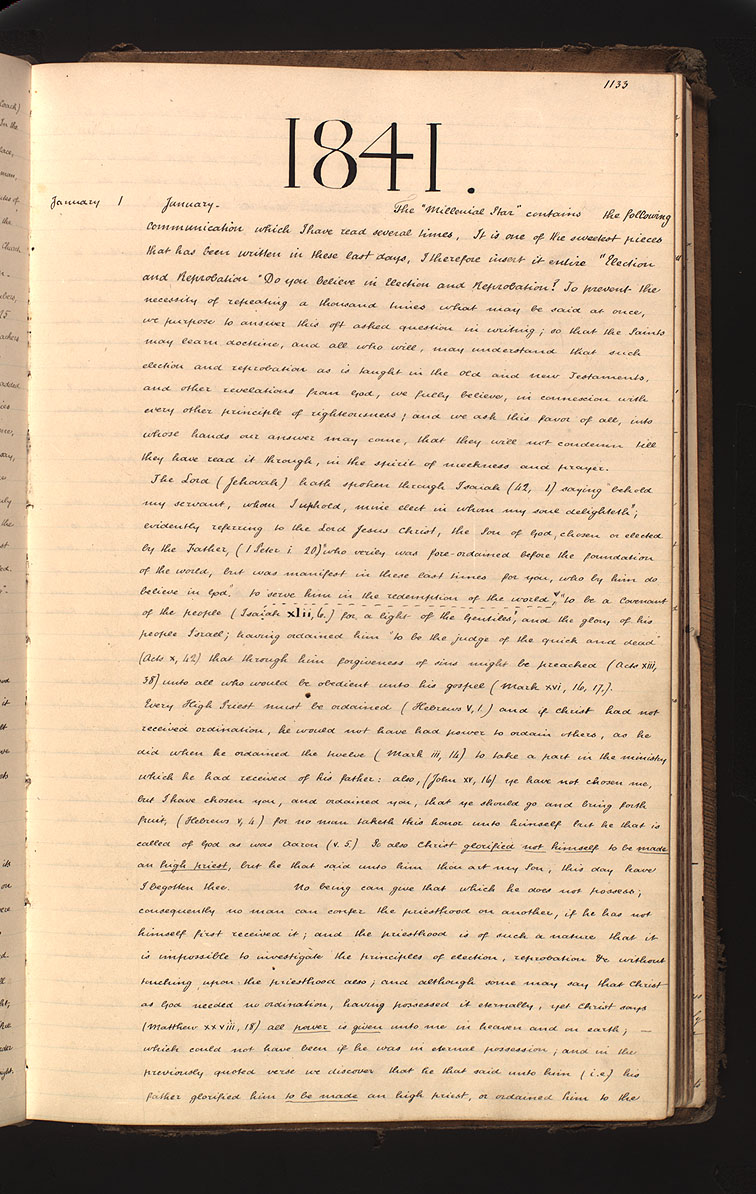 1133
1841.
January 1 January. The "Millenial Star" contains the following
communication which I have read several times, It is one of the sweetest pieces
that has been written in these last days, I therefore insert it entire "Election
and Reprobation "Do you believe in Election and Reprobation? To prevent the
necessity of repeating a thousand times what may be said at once,
we purpose to answer this oft asked question in writing; so that the Saints
may learn doctrine, and all who will, may understand that such
election and reprobation as is taught in the old and new Testaments,
and other revelations from God, we fully believe, in connexion with
every other principle of righteousness; and we ask this favor of all, into
whose hands our answer may come, that they will not condemn till
they have read it through, in the spirit of meekness and prayer.
The Lord (Jehovah) hath spoken through Isaiah (42, 1) saying "behold
my servant, whom I uphold, mine elect in whom my soul delighteth";
evidently referring to the Lord Jesus Christ, the Son of God, chosen or elected
by the Father, (1 Peter i. 20) "who verily was fore-ordained before the foundation
of the world, but was manifest in these last times for you, who by him do
believe in God," to serve him in the redemption of the world, "to be a Covenant
of the people (Isaiah xlii, 6.) for a light of the Gentiles", and the glory of his
people Israel; having ordained him "to be the judge of the quick and dead"
(Acts x, 42) that through him forgiveness of sins might be preached (Acts xiii,
38) unto all who would be obedient unto his gospel (Mark xvi, 16, 17.).
Every High Priest must be ordained (Hebrews v, 1.) and if Christ had not
received ordination, he would not have had power to ordain others, as he
did when he ordained the twelve (Mark iii, 14) to take a part in the ministry
which he had received of his father: also, (John xv, 16) ye have not chosen me,
but I have chosen you, and ordained you, that ye should go and bring forth
fruit, (Hebrews v, 4) for no man taketh this honor unto himself but he that is
called of God as was Aaron (v. 5.) So also Christ glorified not himself to be made
an high priest, but he that said unto him thou art my Son, this day have
I begotten thee. No being can give that which he does not possess;
consequently no man can confer the priesthood on another, if he has not
himself first received it; and the priesthood is of such a nature that it
is impossible to investigate the principles of election, reprobation &c without
touching upon the priesthood also; and although some may say that Christ
as God needed no ordination, having possessed it eternally, yet Christ says
(Matthew xxviii, 18) all power is given unto me in heaven and on earth; —
which could not have been if he was in eternal possession; and in the
previously quoted verse we discover that he that said unto him (i.e) his
father glorified him to be made an high priest, or ordained him to the